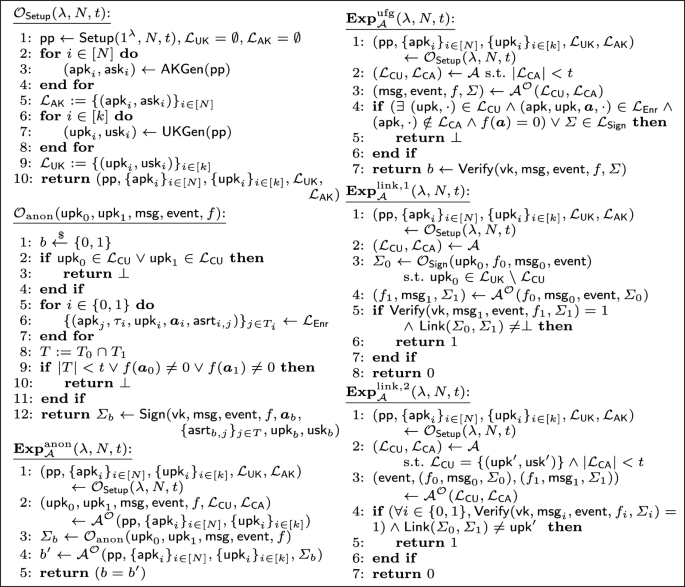 𝒪_Setup(λ, N, t):
1: pp ← Setup(1^λ, N, t), ℒ_UK = ∅, ℒ_AK = ∅
2: for i ∈ [N] do
3: (apk_i, ask_i) ← AKGen(pp)
4: end for
5: ℒ_AK := {(apk_i, ask_i)}_{i∈[N]}
6: for i ∈ [k] do
7: (upk_i, usk_i) ← UKGen(pp)
8: end for
9: ℒ_UK := {(upk_i, usk_i)}_{i∈[k]}
10: return (pp, {apk_i}_{i∈[N]}, {upk_i}_{i∈[k]}, ℒ_UK,
ℒ_AK)
𝒪_anon(upk_0, upk_1, msg, event, f):
1: b ←$ {0, 1}
2: if upk_0 ∈ ℒ_CU ∨ upk_1 ∈ ℒ_CU then
3: return ⊥
4: end if
5: for i ∈ {0, 1} do
6: {(apk_j, τ_i, upk_i, a_i, asrt_{i,j})}_{j∈T_i} ← ℒ_Enr
7: end for
8: T := T_0 ∩ T_1
9: if |T| < t ∨ f(a_0) ≠ 0 ∨ f(a_1) ≠ 0 then
10: return ⊥
11: end if
12: return Σ_b ← Sign(vk, msg, event, f, a_b,
{asrt_{b,j}}_{j∈T}, upk_b, usk_b)
Exp_𝒜^anon(λ, N, t):
1: (pp, {apk_i}_{i∈[N]}, {upk_i}_{i∈[k]}, ℒ_UK, ℒ_AK)
← 𝒪_Setup(λ, N, t)
2: (upk_0, upk_1, msg, event, f, ℒ_CU, ℒ_CA)
← 𝒜^𝒪(pp, {apk_i}_{i∈[N]}, {upk_i}_{i∈[k]})
3: Σ_b ← 𝒪_anon(upk_0, upk_1, msg, event, f)
4: b′ ← 𝒜^𝒪(pp, {apk_i}_{i∈[N]}, {upk_i}_{i∈[k]}, Σ_b)
5: return (b = b′)
Exp_𝒜^ufg(λ, N, t):
1: (pp, {apk_i}_{i∈[N]}, {upk_i}_{i∈[k]}, ℒ_UK, ℒ_AK)
← 𝒪_Setup(λ, N, t)
2: (ℒ_CU, ℒ_CA) ← 𝒜 s.t. |ℒ_CA| < t
3: (msg, event, f, Σ) ← 𝒜^𝒪(ℒ_CU, ℒ_CA)
4: if (∃ (upk, ·) ∈ ℒ_CU ∧ (apk, upk, a, ·) ∈ ℒ_Enr ∧
(apk, ·) ∉ ℒ_CA ∧ f(a) = 0) ∨ Σ ∈ ℒ_Sign then
5: return ⊥
6: end if
7: return b ← Verify(vk, msg, event, f, Σ)
Exp_𝒜^link,1(λ, N, t):
1: (pp, {apk_i}_{i∈[N]}, {upk_i}_{i∈[k]}, ℒ_UK, ℒ_AK)
← 𝒪_Setup(λ, N, t)
2: (ℒ_CU, ℒ_CA) ← 𝒜
3: Σ_0 ← 𝒪_Sign(upk_0, f_0, msg_0, event)
s.t. upk_0 ∈ ℒ_UK \ ℒ_CU
4: (f_1, msg_1, Σ_1) ← 𝒜^𝒪(f_0, msg_0, event, Σ_0)
5: if Verify(vk, msg_1, event, f_1, Σ_1) = 1
∧ Link(Σ_0, Σ_1) ≠⊥ then
6: return 1
7: end if
8: return 0
Exp_𝒜^link,2(λ, N, t):
1: (pp, {apk_i}_{i∈[N]}, {upk_i}_{i∈[k]}, ℒ_UK, ℒ_AK)
← 𝒪_Setup(λ, N, t)
2: (ℒ_CU, ℒ_CA) ← 𝒜
s.t. ℒ_CU = {(upk′, usk′)} ∧ |ℒ_CA| < t
3: (event, (f_0, msg_0, Σ_0), (f_1, msg_1, Σ_1))
← 𝒜^𝒪(ℒ_CU, ℒ_CA)
4: if (∀i ∈ {0, 1}, Verify(vk, msg_i, event, f_i, Σ_i) =
1) ∧ Link(Σ_0, Σ_1) ≠ upk′ then
5: return 1
6: end if
7: return 0